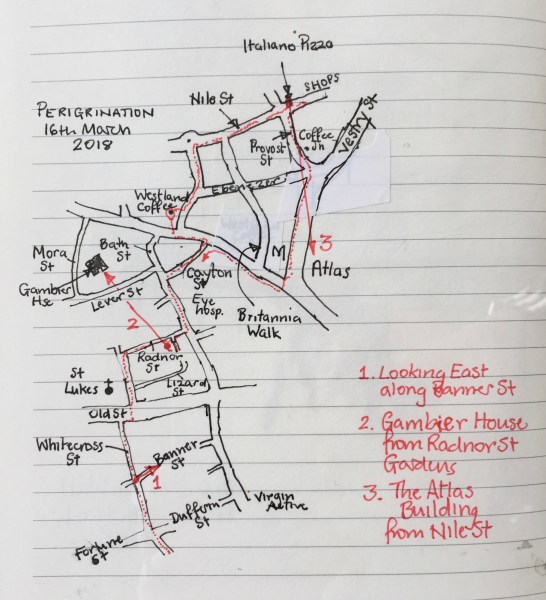 Italiano Pizza
SHOPS
Nile St
PERIGRINATION
16th March
2018
Provost
St
Coffee
Jn
Vestry St
Ebenezer
Westland
Coffee
Mora
St
Bath
St
Gambier
Hse
Lever St
Cayton
St
Eye
Hosp.
M
3
Atlas
Britannia
Walk
2
Radnor
St
St
Lukes
Lizard
St
Old St
Whitecross
St
Banner
St
1
Dufferin
St
Virgin
Active
Fortune
St
1. Looking East
along Banner St
2. Gambier House
from Radnor St
Gardens
3. The Atlas
Building
from Nile St